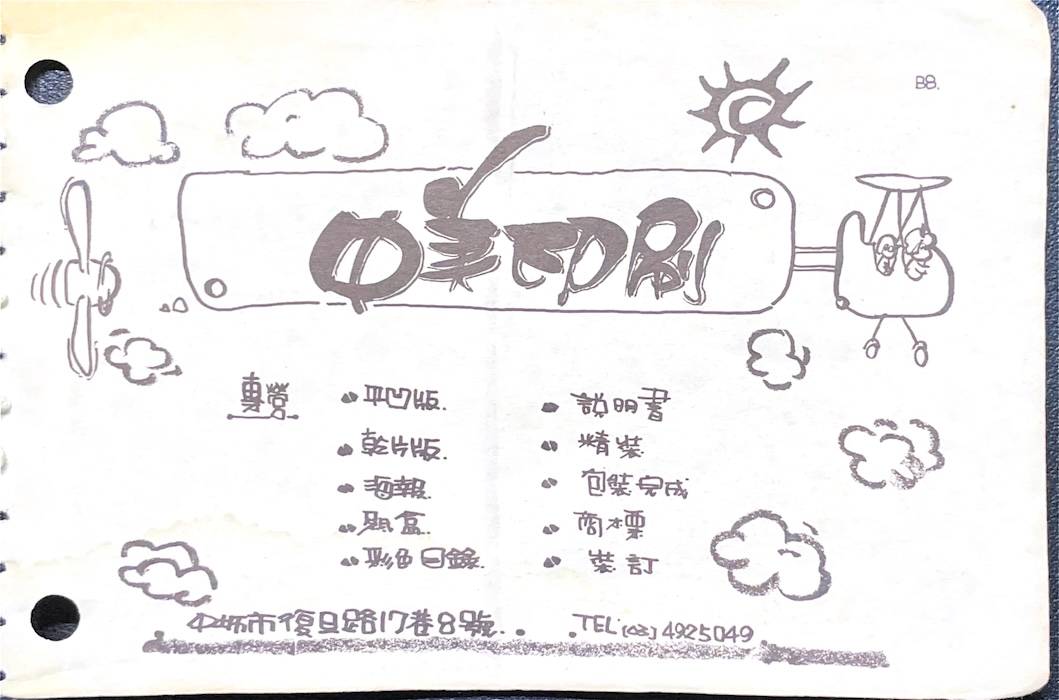 B8.
中美印刷
專營
• 平凹版.
• 乾片版.
• 海報.
• 盒.
• 彩色目錄.
• 說明書
• 精裝.
• 包裝完成
• 商標
• 裝訂
中坜市復旦路17巷8號.
TEL(03)4925049